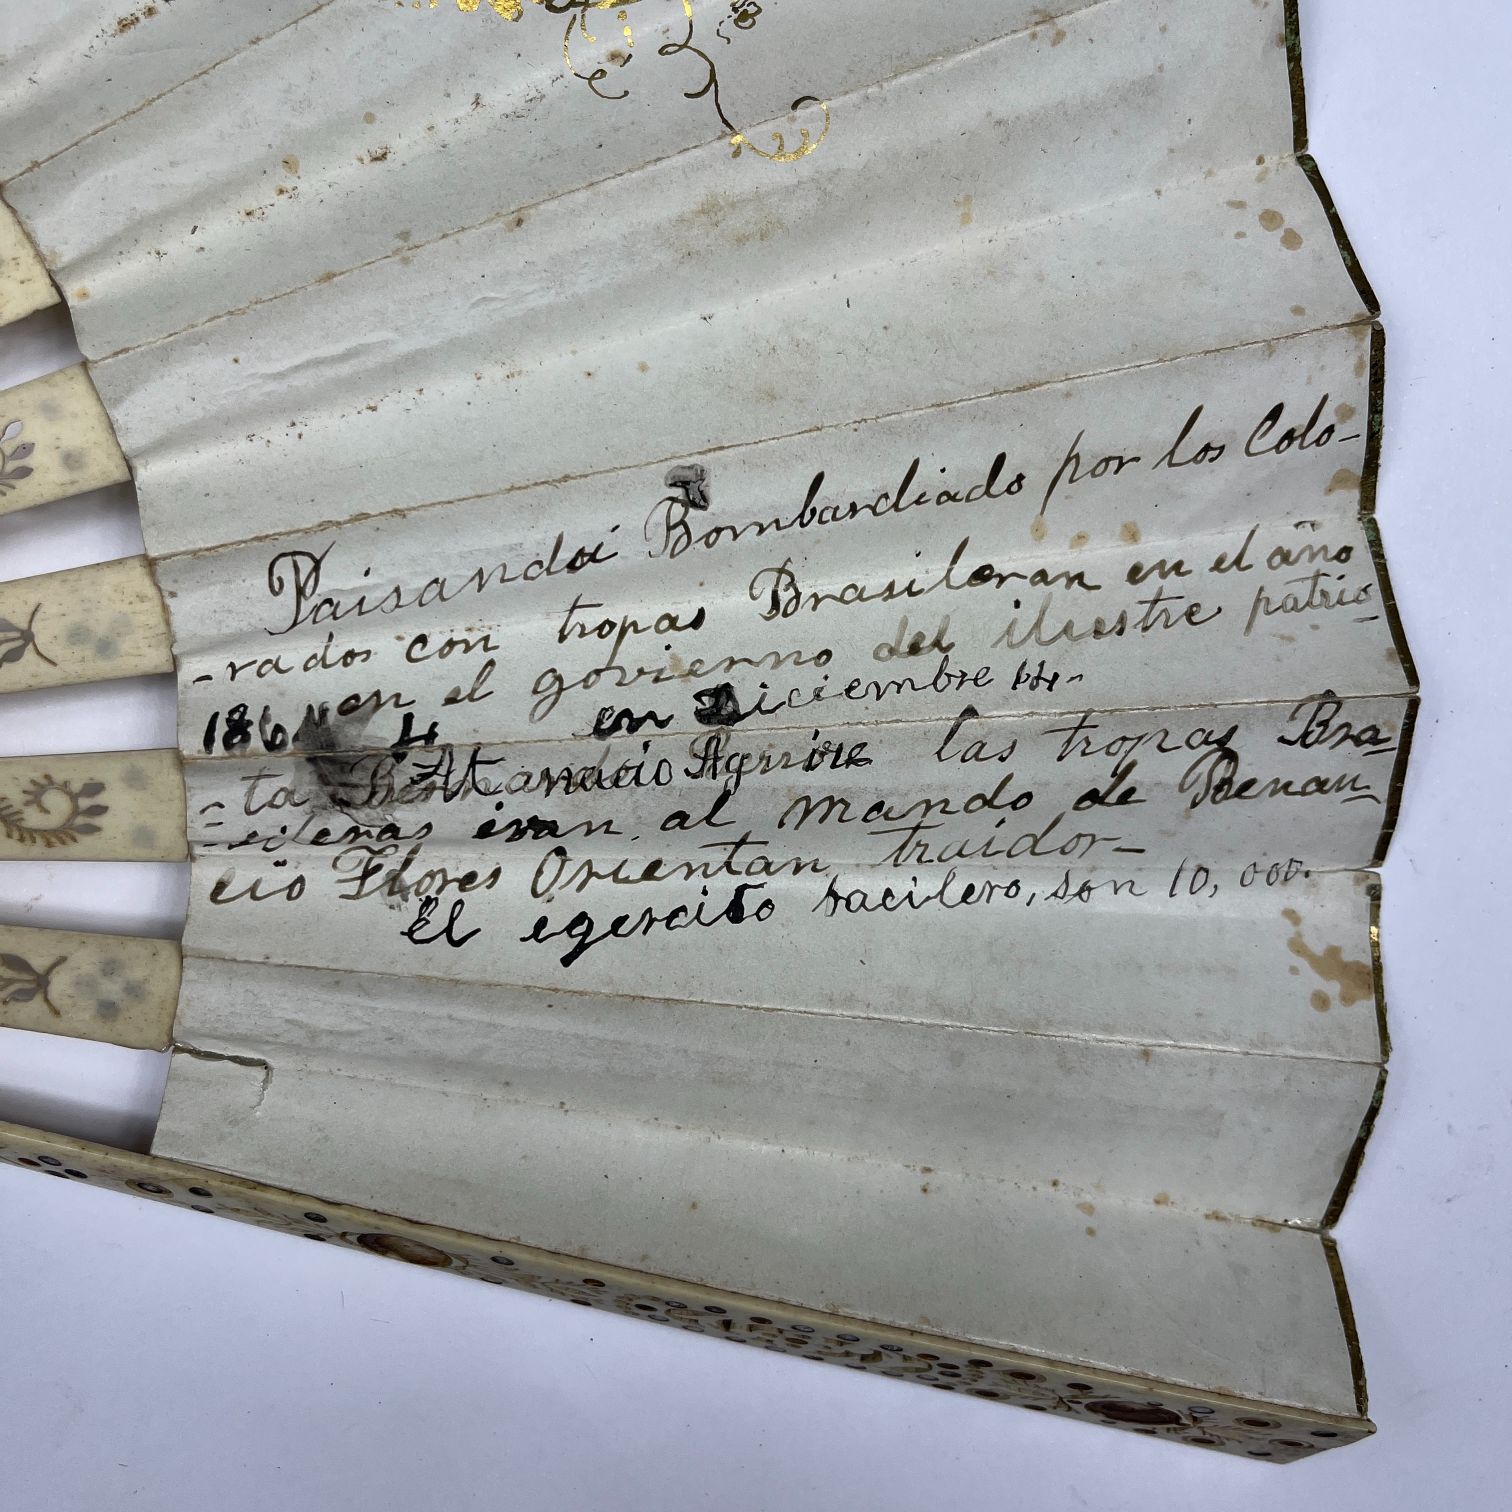 Paisandú Bombardiado por los Colo-
-rados con tropas Brasileran en el año
1864 en el govierno del ilustre patrio-
4 en Diciembre
-ta Atanacio Agrrire las tropas Bra-
-eileras eran al mando de Benan-
cio Flores Orientan traidor-
El egercito racilero, son 10,000.